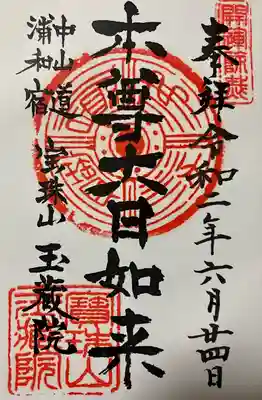 奉拝 令和二年六月廿四日
本尊大日如来
中山道
浦和宿
宝珠山 玉蔵院
寶珠山
玉蔵院